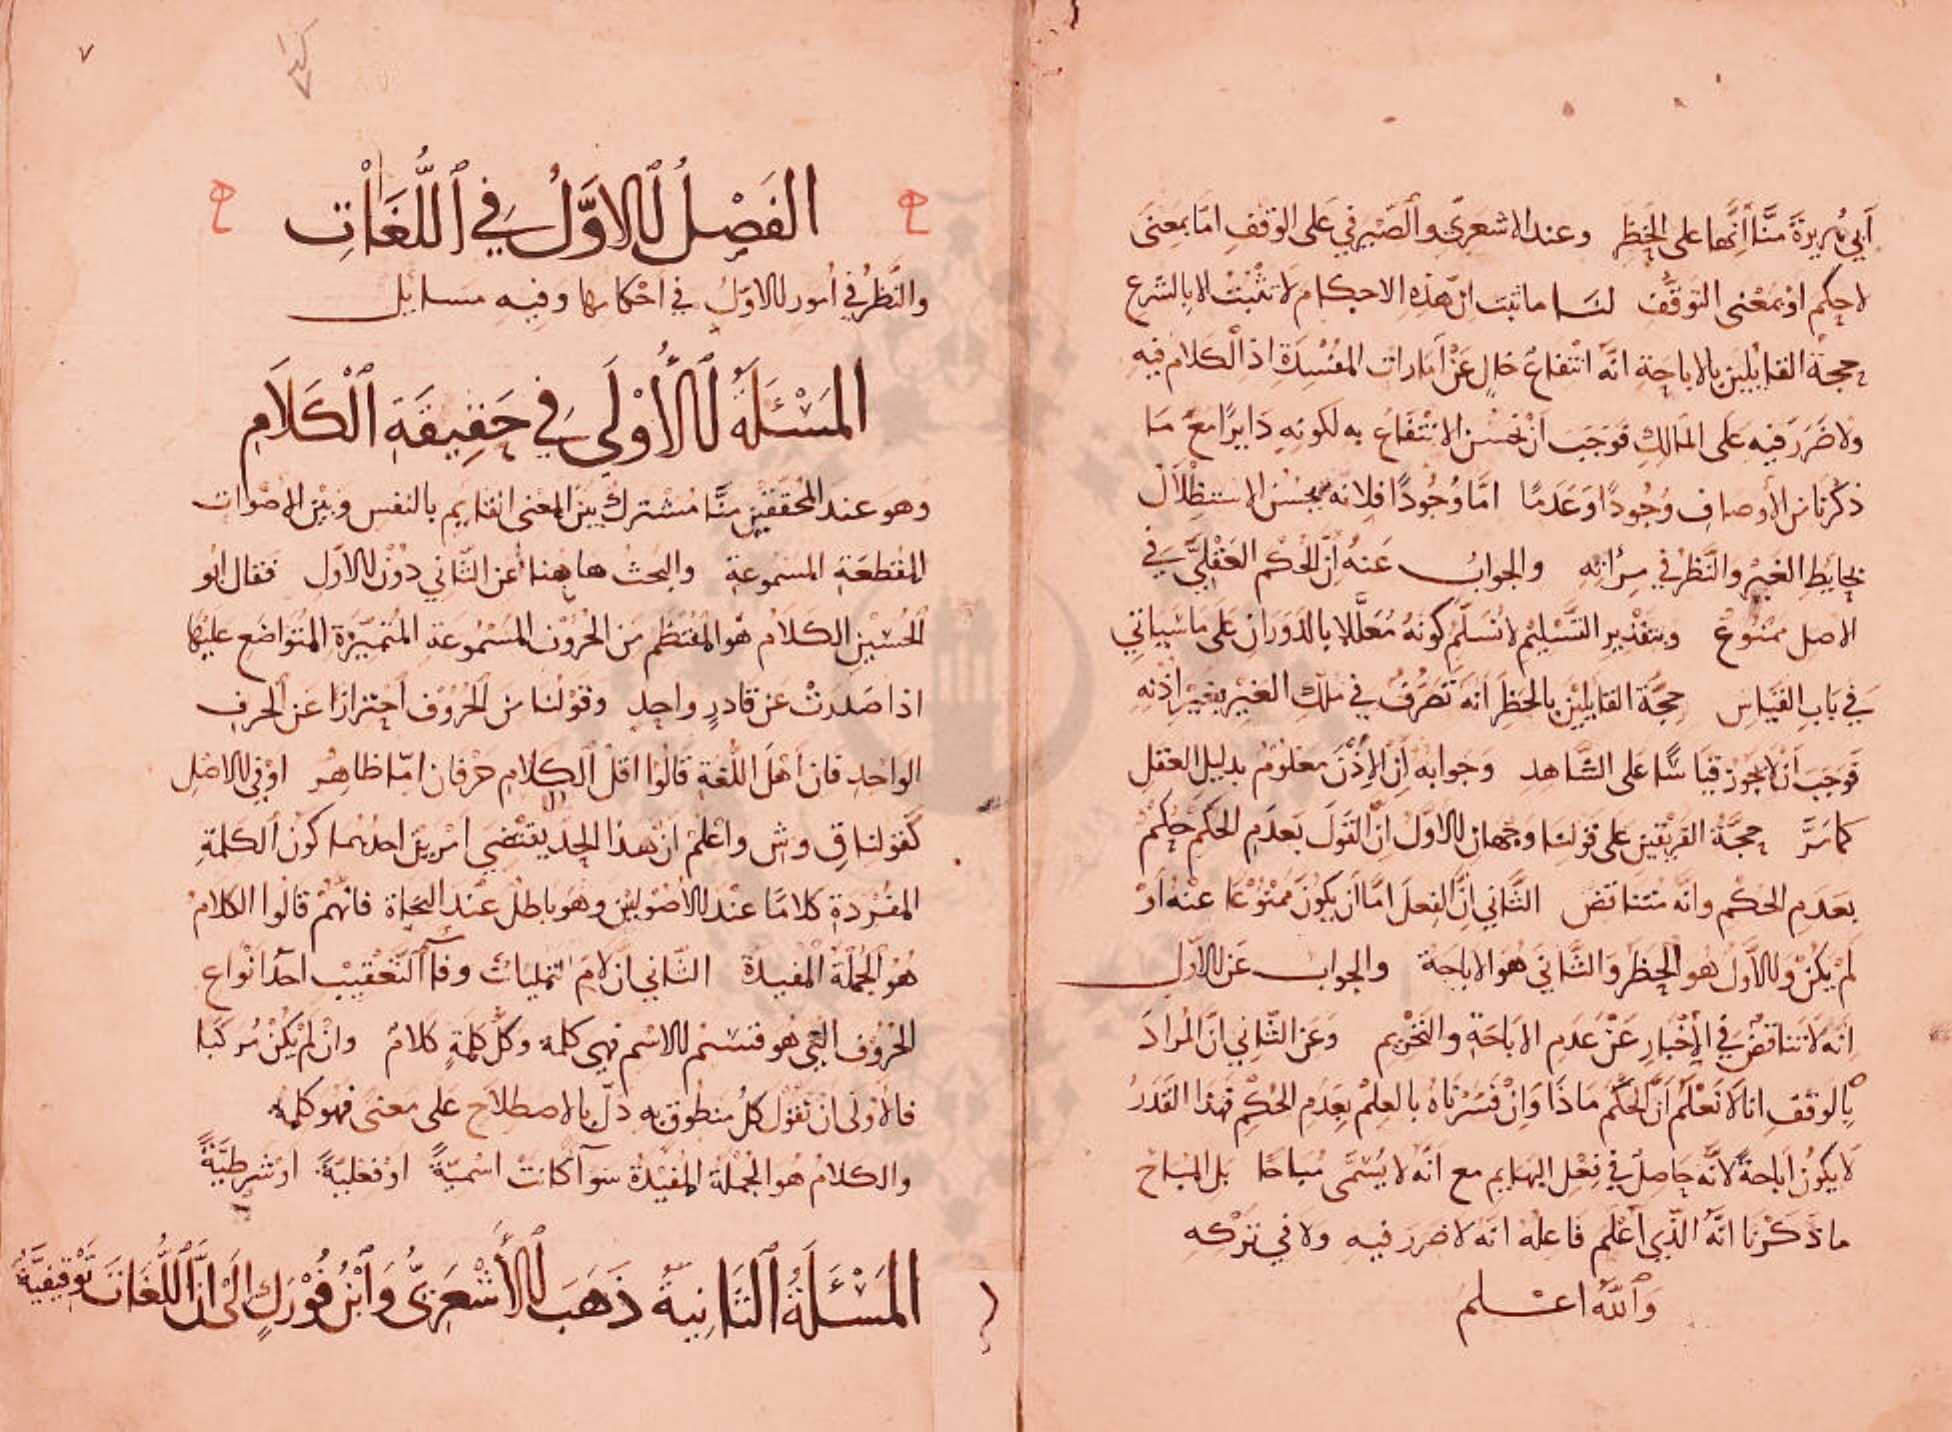 أبي هريرة منَّا أنَّها على الحَظْر وعند الاشعريّ والصَّيْرفي على الوقف امّا بمعنى
لا حكم اوْ بمَعْنى التوقُّف لنا ما ثبت انّ هذه الاحكام لا تثبُتُ الا بالشرع
حجة القايلين بالاباحة انّه انتفاعٌ خالٍ عَنْ أمارات المفْسَدَة اذ الكلام فيه
ولا ضَرَرَ فيه على المالك فوَجَبَ أنْ يحْسُن الانْتفاعُ به لكونه دَايرًا معَ مَا
ذكرنا من الأوصاف وُجُودًا وَعَدَمًا امَّا وُجُودًا فلانه يحْسُنُ الاستظْلاَل
بحايط الغير والنَّظر في مرآته والجوابُ عَنهُ أنَّ الحُكم العَقْليَّ في
الاصل ممْنُوعٌ وبتقدير التَّسْليم لا نُسَلّم كونهُ مُعَلَّلا بالدَوَران على ما سَياتي
في بَاب القيَاس حجَّة القايلين بالحظر أنّه تصَرُّفٌ في ملك الغَيْر بغير اذنه
فوجَبَ أنْ لا يجوز قياسًا على الشَّاهد وَجوابه أنّ الإذْنَ مَعْلومٌ بدليل العقل
كما مَرَّ حجَّة الفريقين على قولنا وجهان الاول انّ القَولَ بعدَم الحكم حكمٌ
بعَدَم الحكْم وانّه مُتَناقض الثَّاني أنَّ الفعلَ امَّا أن يكونَ ممْنُوعًا عنْهُ أوْ
لمْ يكنْ والاوَّل هو الحظر وَالثَّاني هو الاباحَة والجواب عَن الاول
انّه لا تناقُضَ في الإخْبار عَنْ عَدَم الاباحَة والتحْريم وعَن الثّاني انّ المُرادَ
بالوقف انا لا نَعْلَم أنَّ الحكْم ماذَا وَانْ فسَّرْناهُ بالعِلمْ بعَدَم الحُكْم فهذا القَدَرُ
لا يكونُ اباحةً لأنَّه حَاصلٌ في فِعْل البهايم مع أنّه لا يُسَمَّى مُباحًا بل المباح
ما ذكَرْنا انَّهُ الذّي أعْلم فاعله انّه لا ضرر فيه ولا في تركه
وَاللّٰهُ اعلم
٧
الفَصْلُ الاوَّلُ في اللُّغَات
والنَّظرُ في أمور الاوّلُ في احْكامها وفيه مسايل
المَسْئَلَةُ الأُوْلَى في حَقيقَة الكَلَام
وهو عند المحُقّقين منَّا مُشْترك بين المعنى القايم بالنفس وبين الاصْوات
المقُطّعَة المسْموعة والبحث هاهنا عن الثّاني دُوْن الاول فقال ابُو
الحُسَين الكلامُ هو المُنتظم من الحُرُوْف المسْمُوعة المتميّزة المتَواضع عليها
اذا صَدَرَتْ عَن قادرٍ واحدٍ وقوْلنا من الحُرُوْف احترازًا عَن الحرف
الواحد فان اهْلَ اللّغة قَالُوا اقل الكلام حَرْفان امّا ظاهر اوْ في الاصْل
كقولنا قِ وشِ واعْلمْ انّ هذا الحدّ يقتضي امْرين احدُهما كون الكلمة
المفْرَدة كلامًا عنْد الاصُوليين وهو باطل عنْد النحاة فانهمْ قالوا الكلامُ
هُو الجُملة المُفيدة الثاني ان لامَ التمليك وفآ التعْقيب احدُ انْواع
الحُرُوف الّتي هُو قسْم الاسْم فهي كلمة وكلّ كلمَةٍ كلامٌ وانْ لمْ يكنْ مُركبًا
فالاوْلى ان نقوْل كلُّ منطوق به دلّ بالاصطلاح على معنى فهو كلمة
والكلامُ هو الجُملة المُفيْدة سَوآ كانتْ اسْميّةً اوْ فعْليّةً اوْ شَرطيَّةً
المَسْئَلَةُ الثَّانِيَةُ ذَهَبَ الأَشْعَرِيُّ وَابْنُ فُوْرَكٍ الَى انَّ اللُّغَات تَوْقيفيَّةٌ